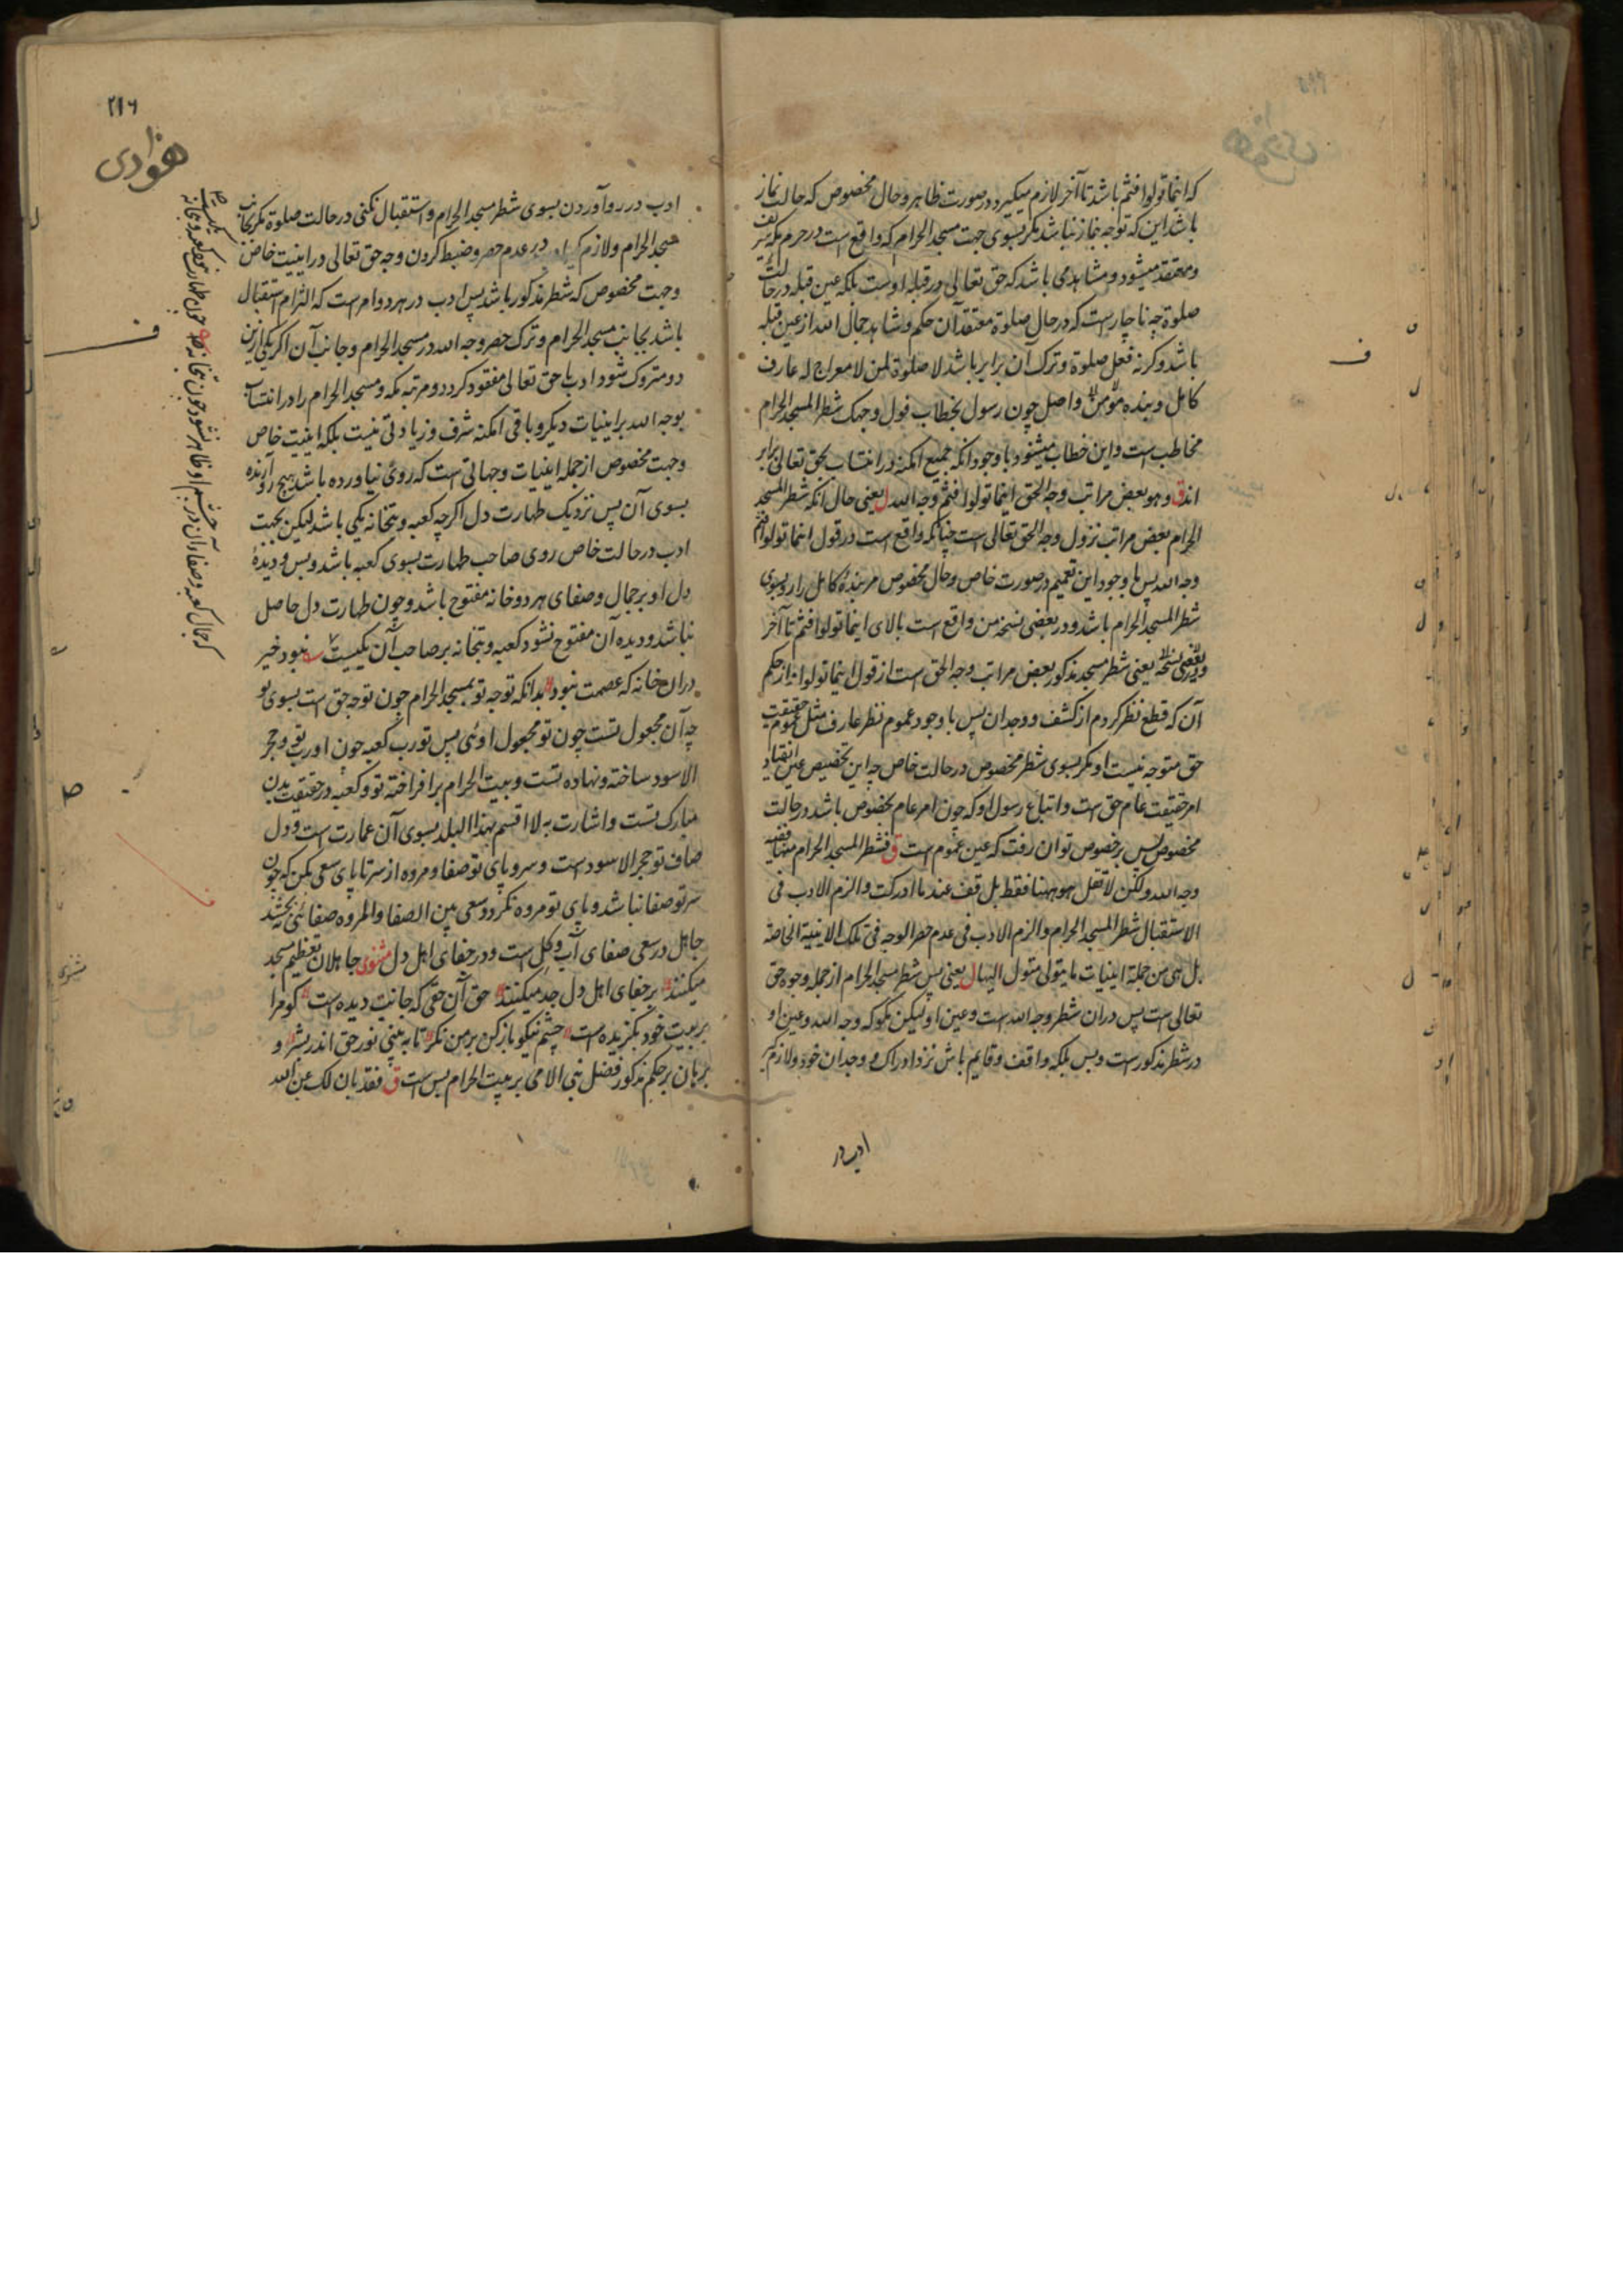 که اینما تولوا فثم باشد تا آخر لازم میگیرد در صورت ظاهر و حال مخصوص که حالت نماز
باشد این که توجه نماز نباشد مگر بسوی جهت مسجد الحرام که واقع است در حرم مکه
و معتقد میشود و مشاهد می باشد که حق تعالی در قبله اوست بلکه عین قبله در حالت
صلوة چه ناچار است که در حال صلوة معتقد آن حکم و مشاهد جمال الله از عین قبله
باشد و کرنه فعل صلوة و ترک آن برابر باشد لا صلوة لمن لا معراج له عارف
کامل و بنده مؤمن واصل چون رسول بخطاب فول وجهک شطر المسجد الحرام
مخاطب است و این خطاب میشنود با وجود آنکه جمیع امکنه در انتساب بحق تعالی برابر
اند ق و هو بعض مراتب وجه الحق اینما تولوا فثم وجه الله ل یعنی حال آنکه شطر المسجد
الحرام بعض مراتب نزول وجه الحق تعالی است چنانکه واقع است در قول اینما تولوا فثم
وجه الله پس با وجود این تعمیم در صورت خاص و حال مخصوص مر بنده کامل را رو بسوی
شطر المسجد الحرام باشد و در بعضی نسخه من واقع است بالای اینما تولوا فثم تا آخر
و در بعضی نسخه یعنی شطر مسجد مذکور بعض مراتب وجه الحق است از قول اینما تولوا از حکم
آن که قطع نظر کردم از کشف و وجدان پس با وجود عموم نظر عارف مثل عموم حقیقت
حق متوجه نیست او مگر بسوی شطر مخصوص در حالت خاص چه این تخصیص عین انقیاد
امر حقیقت عام حق است و اتباع رسول او که چون امر عام بخصوص باشد در حالت
مخصوص پس بر خصوص توان رفت که عین عموم است ق فشطر المسجد الحرام منها ففیه
وجه الله ولکن لا تقل هو ههنا فقط بل قف عند ما ادرکت والزم الادب فی
الاستقبال شطر المسجد الحرام والزم الادب فی عدم حصر الوجه فی تلک الاینیة الخاصة
بل هی من جملة اینیات ما یتولی متول الیها ل یعنی پس شطر مسجد الحرام از جمله وجوه حق
تعالی است پس دران شطر وجه الله است و عین او لیکن نگو که وجه الله و عین او
در شطر مذکور است و بس بلکه واقف و قایم باش نزد ادراک و وجدان خود و لازم گیر
ادب در
٢١٦
ادب در رو آوردن بسوی شطر مسجد الحرام و استقبال نکنی در حالت صلوة مکر بجانب
مسجد الحرام و لازم گیر ادب در عدم حصر و ضبط کردن وجه حق تعالی در اینیت خاص
و جهت مخصوص که شطر مذکور باشد پس ادب در هر دو امر است که التزام استقبال
باشد بجانب مسجد الحرام و ترک حصر وجه الله در مسجد الحرام و جانب آن اگر یکی ازین
دو متروک شود ادب با حق تعالی مفقود کردد و مرتبه مکه و مسجد الحرام را در انتساب
بوجه الله بر اینیات دیگر و باقی امکنه شرف و زیادتی نیست بلکه اینیت خاص
و جهت مخصوص از جمله اینیات و جهاتی است که روی نیاورده باشد هیچ رو آرنده
بسوی آن پس نزدیک طهارت دل اگرچه کعبه و بتخانه یکی باشد لیکن بجهت
ادب در حالت خاص روی صاحب طهارت بسوی کعبه باشد و بس و دیدۀ
دل او بر جمال و صفای هر دو خانه مفتوح باشد و چون طهارت دل حاصل
نباشد و دیده آن مفتوح نشود کعبه و بتخانه بر صاحب آن یکیست نبود خیر
دران خانه که عصمت نبود بدانکه توجه تو بمسجد الحرام چون توجه حق است بسوی تو
چه آن مجعول تست چون تو مجعول اوئی پس تو رب کعبه چون او رب تو و حجر
الاسود ساخته و نهاده تست و بیت الحرام بر افراخته تو و کعبه در حقیقت بدن
مبارک تست و اشارت به لا اقسم بهذا البلد بسوی آن عمارت است و دل
صاف تو حجر الاسود است و سر و پای تو صفا و مروه از سر تا پای سعی بکن که چون
سر تو صفا نباشد و پای تو مروه نکردد سعی بین الصفا والمروه صفائی نبخشد
جاهل در سعی صفای آب و گل است و در جفای اهل دل مثنوی جاهلان تعظیم مسجد
میکنند بر جفای اهل دل جد میکنند حق آن حقی که جانت دیده است کو مرا
بر بیت خود بگزیده است چشم نیکو باز کن بر من نگر تا به بینی نور حق اندر بشر و
برهان بر حکم مذکور فضل نبی الامی بر بیت الحرام بس است ق فقد بان لک عن الله